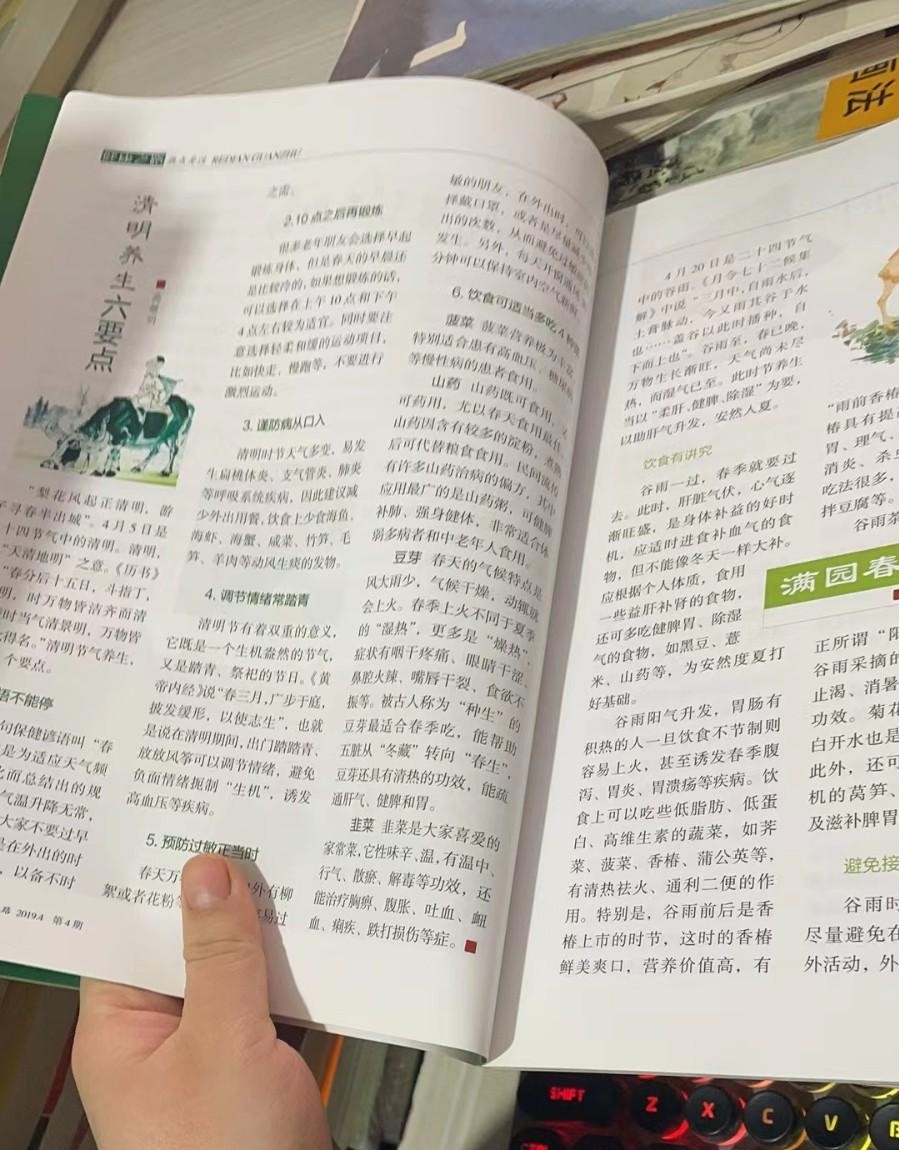 画法
热点关注 REDIAN GUANZHU
清明养生六要点
“梨花风起正清明，游
子寻春半出城”。4月5日是
十四节气中的清明。清明，
“天清地明”之意。《历书》
“春分后十五日，斗指丁，
明，时万物皆洁齐而清
时当气清景明，万物皆
得名。”清明节气养生，
个要点。
语不能停
句保健谚语叫“春
是为适应天气频
而总结出的规
气温升降无常，
大家不要过早
是在外出的时
，以备不时
2019.4 第4期
之需。
2.10点之后再锻炼
很多老年朋友会选择早起
锻炼身体，但是春天的早晨还
是比较冷的，如果想锻炼的话，
可以选择在上午10点和下午
4点左右较为适宜。同时要注
意选择轻柔和缓的运动项目，
比如快走、慢跑等，不要进行
激烈运动。
3. 谨防病从口入
清明时节天气多变，易发
生扁桃体炎、支气管炎、肺炎
等呼吸系统疾病，因此建议减
少外出用餐，饮食上少食海鱼、
海虾、海蟹、咸菜、竹笋、毛
笋、羊肉等动风生痰的发物。
4. 调节情绪常踏青
清明节有着双重的意义，
它既是一个生机盎然的节气，
又是踏青、祭祀的节日。《黄
帝内经》说“春三月，广步于庭，
披发缓形，以使志生”，也就
是说在清明期间，出门踏踏青、
放放风筝可以调节情绪，避免
负面情绪扼制“生机”，诱发
高血压等疾病。
5. 预防过敏正当时
春天万
外有柳
絮或者花粉等
易过
敏的朋友，在外出时，可以选
择戴口罩，或者是尽量减少外
出的次数，从而避免过敏的
发生。另外，每天开窗通风
分钟可以保持室内空气新鲜。
6. 饮食可适当多吃4种
菠菜 菠菜营养极为丰富，
特别适合患有高血压、糖尿病
等慢性病的患者食用。
山药 山药既可食用，又
可药用，尤以春天食用最佳。
山药因含有较多的淀粉，煮熟
后可代替粮食食用。民间流传
有许多山药治病的偏方，其中
应用最广的是山药粥，可健脾
补肺、强身健体，非常适合体
弱多病者和中老年人食用。
豆芽 春天的气候特点是
风大雨少，气候干燥，动辄就
会上火。春季上火不同于夏季
的“湿热”，更多是“燥热”，
症状有咽干疼痛、眼睛干涩、
鼻腔火辣、嘴唇干裂、食欲不
振等。被古人称为“种生”的
豆芽最适合春季吃，能帮助
五脏从“冬藏”转向“春生”，
豆芽还具有清热的功效，能疏
通肝气、健脾和胃。
韭菜 韭菜是大家喜爱的
家常菜，它性味辛、温，有温中、
行气、散瘀、解毒等功效，还
能治疗胸痹、腹胀、吐血、衄
血、痢疾、跌打损伤等症。
4月20日是二十四节气
中的谷雨。《月令七十二候集
解》中说“三月中，自雨水后，
土膏脉动，今又雨其谷于水
也……盖谷以此时播种，自
下而上也”。谷雨至，春已晚，
万物生长渐旺，天气尚未尽
热，而湿气已至。此时节养生
当以“柔肝、健脾、除湿”为要，
以助肝气升发，安然入夏。
饮食有讲究
谷雨一过，春季就要过
去。此时，肝脏气伏，心气逐
渐旺盛，是身体补益的好时
机，应适时进食补血气的食
物，但不能像冬天一样大补。
应根据个人体质，食用
一些益肝补肾的食物，
还可多吃健脾胃、除湿
气的食物，如黑豆、薏
米、山药等，为安然度夏打
好基础。
谷雨阳气升发，胃肠有
积热的人一旦饮食不节制则
容易上火，甚至诱发春季腹
泻、胃炎、胃溃疡等疾病。饮
食上可以吃些低脂肪、低蛋
白、高维生素的蔬菜，如荠
菜、菠菜、香椿、蒲公英等，
有清热祛火、通利二便的作
用。特别是，谷雨前后是香
椿上市的时节，这时的香椿
鲜美爽口，营养价值高，有
“雨前香椿
椿具有提
胃、理气、
消炎、杀虫
吃法很多，
拌豆腐等。
谷雨茶
满园春
正所谓“阳
谷雨采摘的
止渴、消暑
功效。菊花
白开水也是
此外，还可
机的莴笋、
及滋补脾胃
避免接
谷雨时
尽量避免在
外活动，外
SHIFT
Z
X
C
V
B